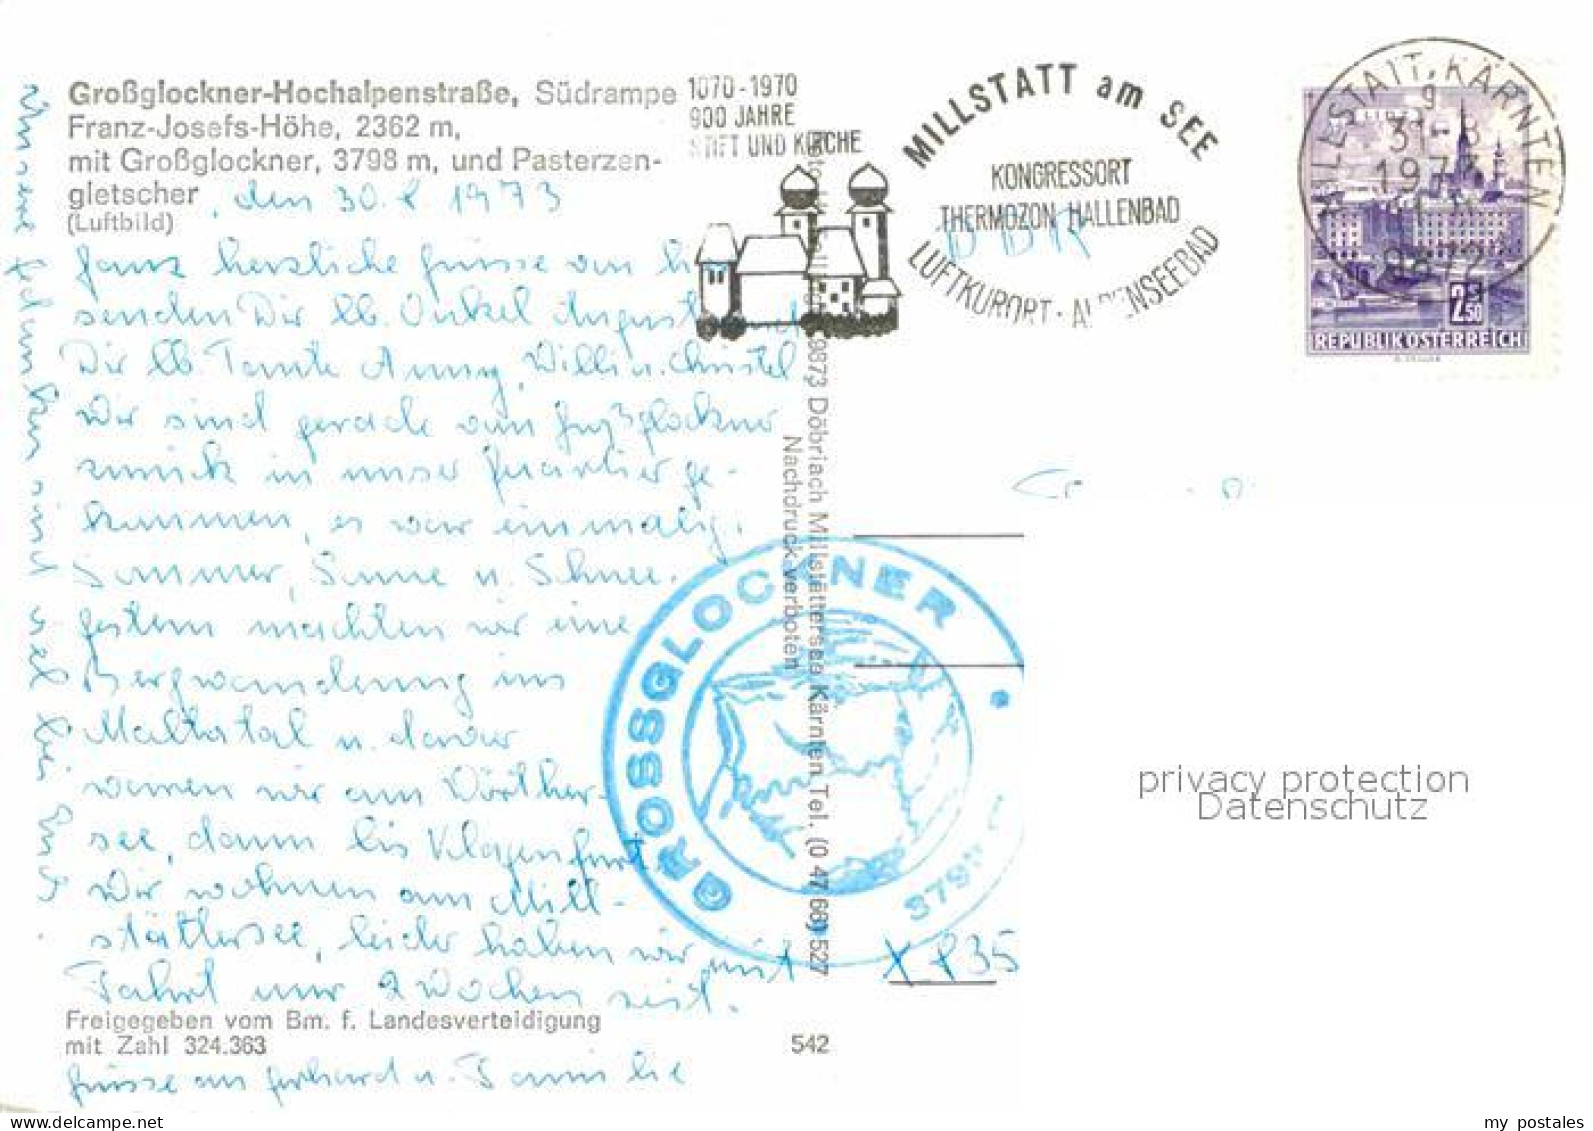 Großglockner-Hochalpenstraße, Südrampe
Franz-Josefs-Höhe, 2362 m,
mit Großglockner, 3798 m, und Pasterzen-
gletscher, den 30.8 1973
(Luftbild)
Ganz herzliche Grüsse von hi
senden Dir lb. Onkel August
Dir lb Tante Anny, Willi u. Christel
Wir sind gerade vom Großglockner
zurück in unser Quartier ge-
kommen, es war einmalig.
Sommer, Sonne u. Schnee.
Gestern machten wir eine
Bergwanderung ins
Maltatal u. davor
waren wir am Wörther-
see, dann bis Klagenfurt.
Wir wohnen am Mill-
stättersee, leider haben wir mit
Fahrt nur 2 Wochen Zeit.
Freigegeben vom Bm. f. Landesverteidigung
mit Zahl 324.363
Grüsse an Gerhard u. Familie
Unsere Gedanken sind viel bei Euch
1070-1970
900 JAHRE
STIFT UND KIRCHE
MILLSTATT am SEE
KONGRESSORT
THERMOZON HALLENBAD
LUFTKURORT · ALPENSEEBAD
DDR
MILLSTATT, KÄRNTEN
31-8
1973
9872
2.50
REPUBLIK ÖSTERREICH
9873 Döbriach Millstättersee Kärnten Tel. (0 47 66) 527
Nachdruck verboten
GROSSGLOCKNER
3798
X 835
542
privacy protection
Datenschutz
my postales